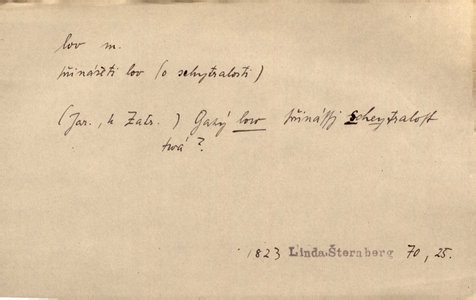 lov m.
přinášeti lov (o schytralosti)
(Jar., k Zatr.) Gaký low přinássj scheytralost
twá?
1823 Linda, Šternberg 70, 25.